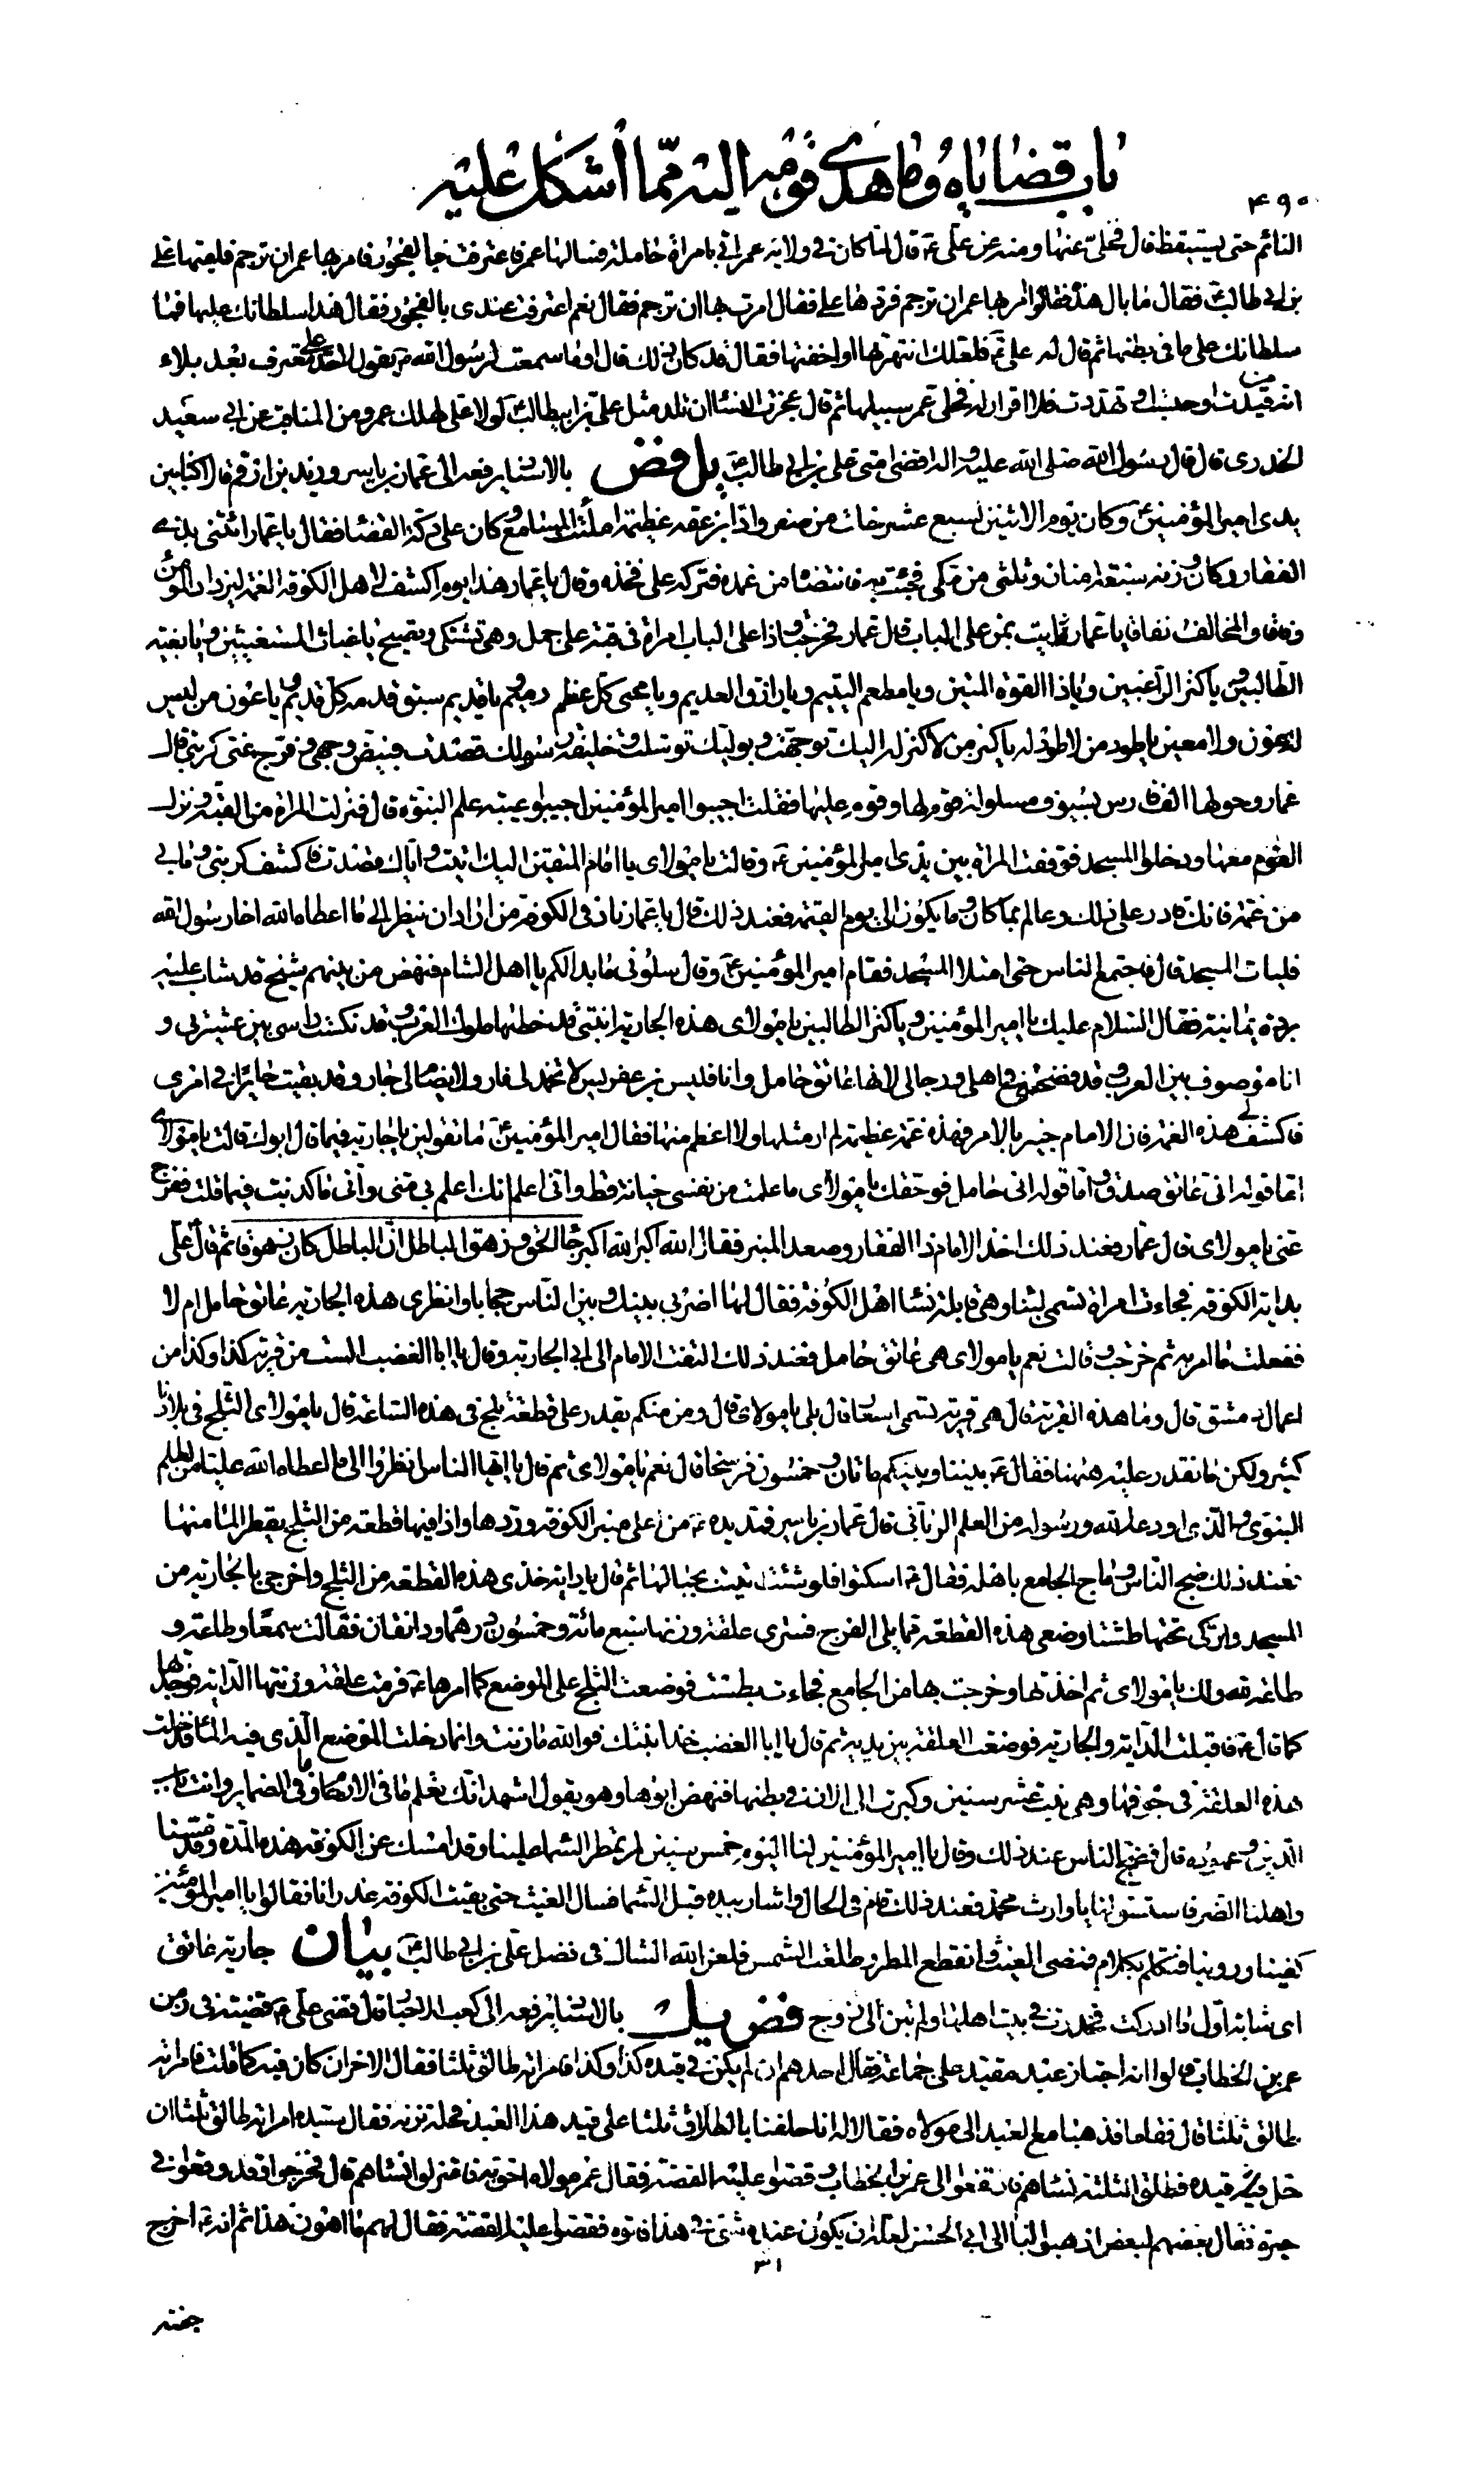 باب قضاياه وما هدى قومه اليه مما اشكل عليه
۴۹۰
النائم حتى يستيقظ قال فخلى عنها ومنه عن على ع قال لما كان فى ولاية عمر اتى بامراة حاملة فسالها عمر فاعترفت بالفجور فامر بها عمر ان ترجم فلقيها على
بن ابى طالب ع فقال ما بال هذه فقالوا امر بها عمر ان ترجم فردها على فقال امرت بها ان ترجم فقال نعم اعترفت عندى بالفجور فقال هذا سلطانك عليها فما
سلطانك على ما فى بطنها ثم قال له على ع فلعلك انتهرتها او اخفتها فقال قد كان ذلك قال او ما سمعت رسول الله ص يقول لا حد على معترف بعد بلاء
انه من قيدت او حبست او تهددت فلا اقرار له فخلى عمر سبيلها ثم قال عجزت النساء ان تلد مثل على بن ابى طالب ع لولا على لهلك عمر ومن المناقب عن ابى سعيد
الخدرى قال قال رسول الله صلى الله عليه واله اقضى امتى على بن ابى طالب ع يل فض بالاسناد يرفعه الى عمار بن ياسر وزيد بن ارقم قالا كنا بين
يدى امير المؤمنين ع وكان يوم الاثنين لسبع عشر خلت من صفر واذا بزعقة عظيمة املئت المسامع وكان على دكة القضا فقال يا عمار ائتنى بذى
الفقار وكان وزنه سبعة امنان وثلثى من مكى فجئت به فانتضاه من غمده فتركه على فخذه وقال يا عمار هذا يوم اكشف لاهل الكوفة الغمة ليزداد المؤمن
وفاقا والمخالف نفاقا يا عمار ايت بمن على الباب قال عمار فخرجت واذا على الباب امراة فى قبة على جمل وهى تشتكى وتصيح يا غياث المستغيثين ويا بغية
الطالبين ويا كنز الراغبين ويا ذا القوة المتين ويا مطعم اليتيم ويا رازق العديم ويا محيى كل عظم رميم ويا قديم سبق قدمه كل قديم ويا عون من ليس
له عون ولا معين يا طود من لا طود له يا كنز من لا كنز له اليك توجهت وبوليك توسلت وخليفة رسولك قصدت فبيض وجهى وفرج عنى كربتى قال
عمار وحولها الف فارس بسيوف مسلولة قوم لها وقوم عليها فقلت اجيبوا امير المؤمنين اجيبوا عيبة علم النبوة قال فنزلت المراة من القبة ونزل
القوم معها ودخلوا المسجد فوقفت المراة بين يدى امير المؤمنين ع وقالت يا مولاى يا امام المتقين اليك اتيت واياك قصدت فاكشف كربتى وما بى
من غمة فانك قادر على ذلك وعالم بما كان وما يكون الى يوم القيمة فعند ذلك قال يا عمار ناد فى الكوفة من اراد ان ينظر الى ما اعطاه الله اخا رسول الله
فليات المسجد قال فاجتمع الناس حتى امتلا المسجد فقام امير المؤمنين ع وقال سلونى ما بدا لكم يا اهل الشام فنهض من بينهم شيخ قد شاب عليه
بردة يمانية فقال السلام عليك يا امير المؤمنين ويا كنز الطالبين يا مولاى هذه الجارية ابنتى قد خطبها ملوك العرب وقد نكست راسى بين عشيرتى و
انا موصوف بين العرب وقد فضحتنى فى اهلى ورجالى لانها عاتق حامل وانا فليس بن عفريس لا تخمد لى نار ولا يضام لى جار وقد بقيت حائرا فى امرى
فاكشف لى هذه الغمة فان الامام خبير بالامر فهذه غمة عظيمة لم ار مثلها ولا اعظم منها فقال امير المؤمنين ع ما تقولين يا جارية فيما قال ابوك قالت يا مولاى
اما قوله انى عاتق صدق واما قوله انى حامل فوحقك يا مولاى ما علمت من نفسى خيانة قط وانى اعلم انك اعلم بى منى وانى ما كذبت فيما قلت ففرج
عنى يا مولاى قال عمار فعند ذلك اخذ الامام ذا الفقار وصعد المنبر فقال الله اكبر الله اكبر جاء الحق وزهق الباطل ان الباطل كان زهوقا ثم قال ع على
بداية الكوفة فجاءت امراة تسمى لبنا وهى قابلة نساء اهل الكوفة فقال لها اضربى بينك وبين الناس حجابا وانظرى هذه الجارية عاتق حامل ام لا
ففعلت ما امر به ثم خرجت وقالت نعم يا مولاى هى عاتق حامل فعند ذلك التفت الامام الى ابى الجارية وقال يا ابا الغضب الست من قرية كذا وكذا من
اعمال دمشق قال وما هذه القرية قال هى قرية تسمى اسعار قال بلى يا مولاى قال ومن منكم يقدر على قطعة ثلج فى هذه الساعة قال يا مولاى الثلج فى بلادنا
كثير ولكن ما نقدر عليه ههنا فقال ع بيننا وبينكم مائتان وخمسون فرسخا قال نعم يا مولاى ثم قال يا ايها الناس انظروا الى ما اعطاه الله عليا من العلم
النبوى والذى اودعه الله ورسوله من العلم الربانى قال عمار بن ياسر فمد يده ع من اعلى منبر الكوفة وردها واذا فيها قطعة من الثلج يقطر الماء منها
فعند ذلك ضج الناس وماج الجامع باهله فقال ع اسكتوا فلو شئت اتيت بجبالها ثم قال يا داية خذى هذه القطعة من الثلج واخرجى بالجارية من
المسجد واتركى تحتها طشتا وضعى هذه القطعة مما يلى الفرج فسترى علقة وزنها سبع مائة وخمسون درهما ودانقان فقالت سمعا وطاعة و
طاعة لله ولك يا مولاى ثم اخذتها وخرجت بها من الجامع فجاءت بطشت فوضعت الثلج على الموضع كما امرها ع فرمت علقة وزنتها الداية فوجدتها
كما قال ع فاقبلت الداية والجارية فوضعت العلقة بين يديه ثم قال يا ابا الغضب خذ ابنتك فوالله ما زنت وانما دخلت الموضع الذى فيه الماء فدخلت
هذه العلقة فى جوفها وهى بنت عشر سنين وكبرت الى الان فى بطنها فنهض ابوها وهو يقول اشهد انك تعلم ما فى الارحام وما فى الضماير وانت باب
الدين وعموده قال فضج الناس عند ذلك وقال يا امير المؤمنين لنا اليوم خمس سنين لم تمطر السماء علينا وقد امسك عن الكوفة هذه المدة وقد مسنا
واهلنا الضر فاستسق لنا يا وارث محمد فعند ذلك قام فى الحال واشار بيده قبل السماء فسال الغيث حتى بقيت الكوفة غدرانا فقالوا يا امير المؤمنين
كفينا وروينا فتكلم بكلام فمضى الغيث وانقطع المطر وطلعت الشمس فلعن الله الشاك فى فضل على بن ابى طالب ع بيان جارية عاتق
اى شابة اول ما ادركت فخدرت فى بيت اهلها ولم تبن الى زوج فض يل بالاسناد يرفعه الى كعب الاحبار قال قضى على ع قضية فى زمن
عمر بن الخطاب قالوا انه اجتاز عبد مقيد على جماعة فقال احدهم ان لم يكن فى قيده كذا وكذا فامراته طالق ثلثا فقال الاخر ان كان فيه كما قلت فامراته
طالق ثلثا قال فقاما فذهبا مع العبد الى مولاه فقالا له انا حلفنا بالطلاق ثلثا على قيد هذا العبد فحله نزنه فقال سيده امراته طالق ثلثا ان
حل قيده فطلق الثلثة نساءهم فارتفعوا الى عمر بن الخطاب وقصوا عليه القصة فقال عمر مولاه احق به فاعتزلوا نساءهم قال فخرجوا وقد وقعوا فى
حيرة فقال بعضهم لبعض اذهبوا بنا الى ابى الحسن لعله ان يكون عنده شئ فى هذا فاتوه فقصوا عليه القصة فقال لهم ما اهون هذا ثم انه ع اخرج
۳۱
جفنة